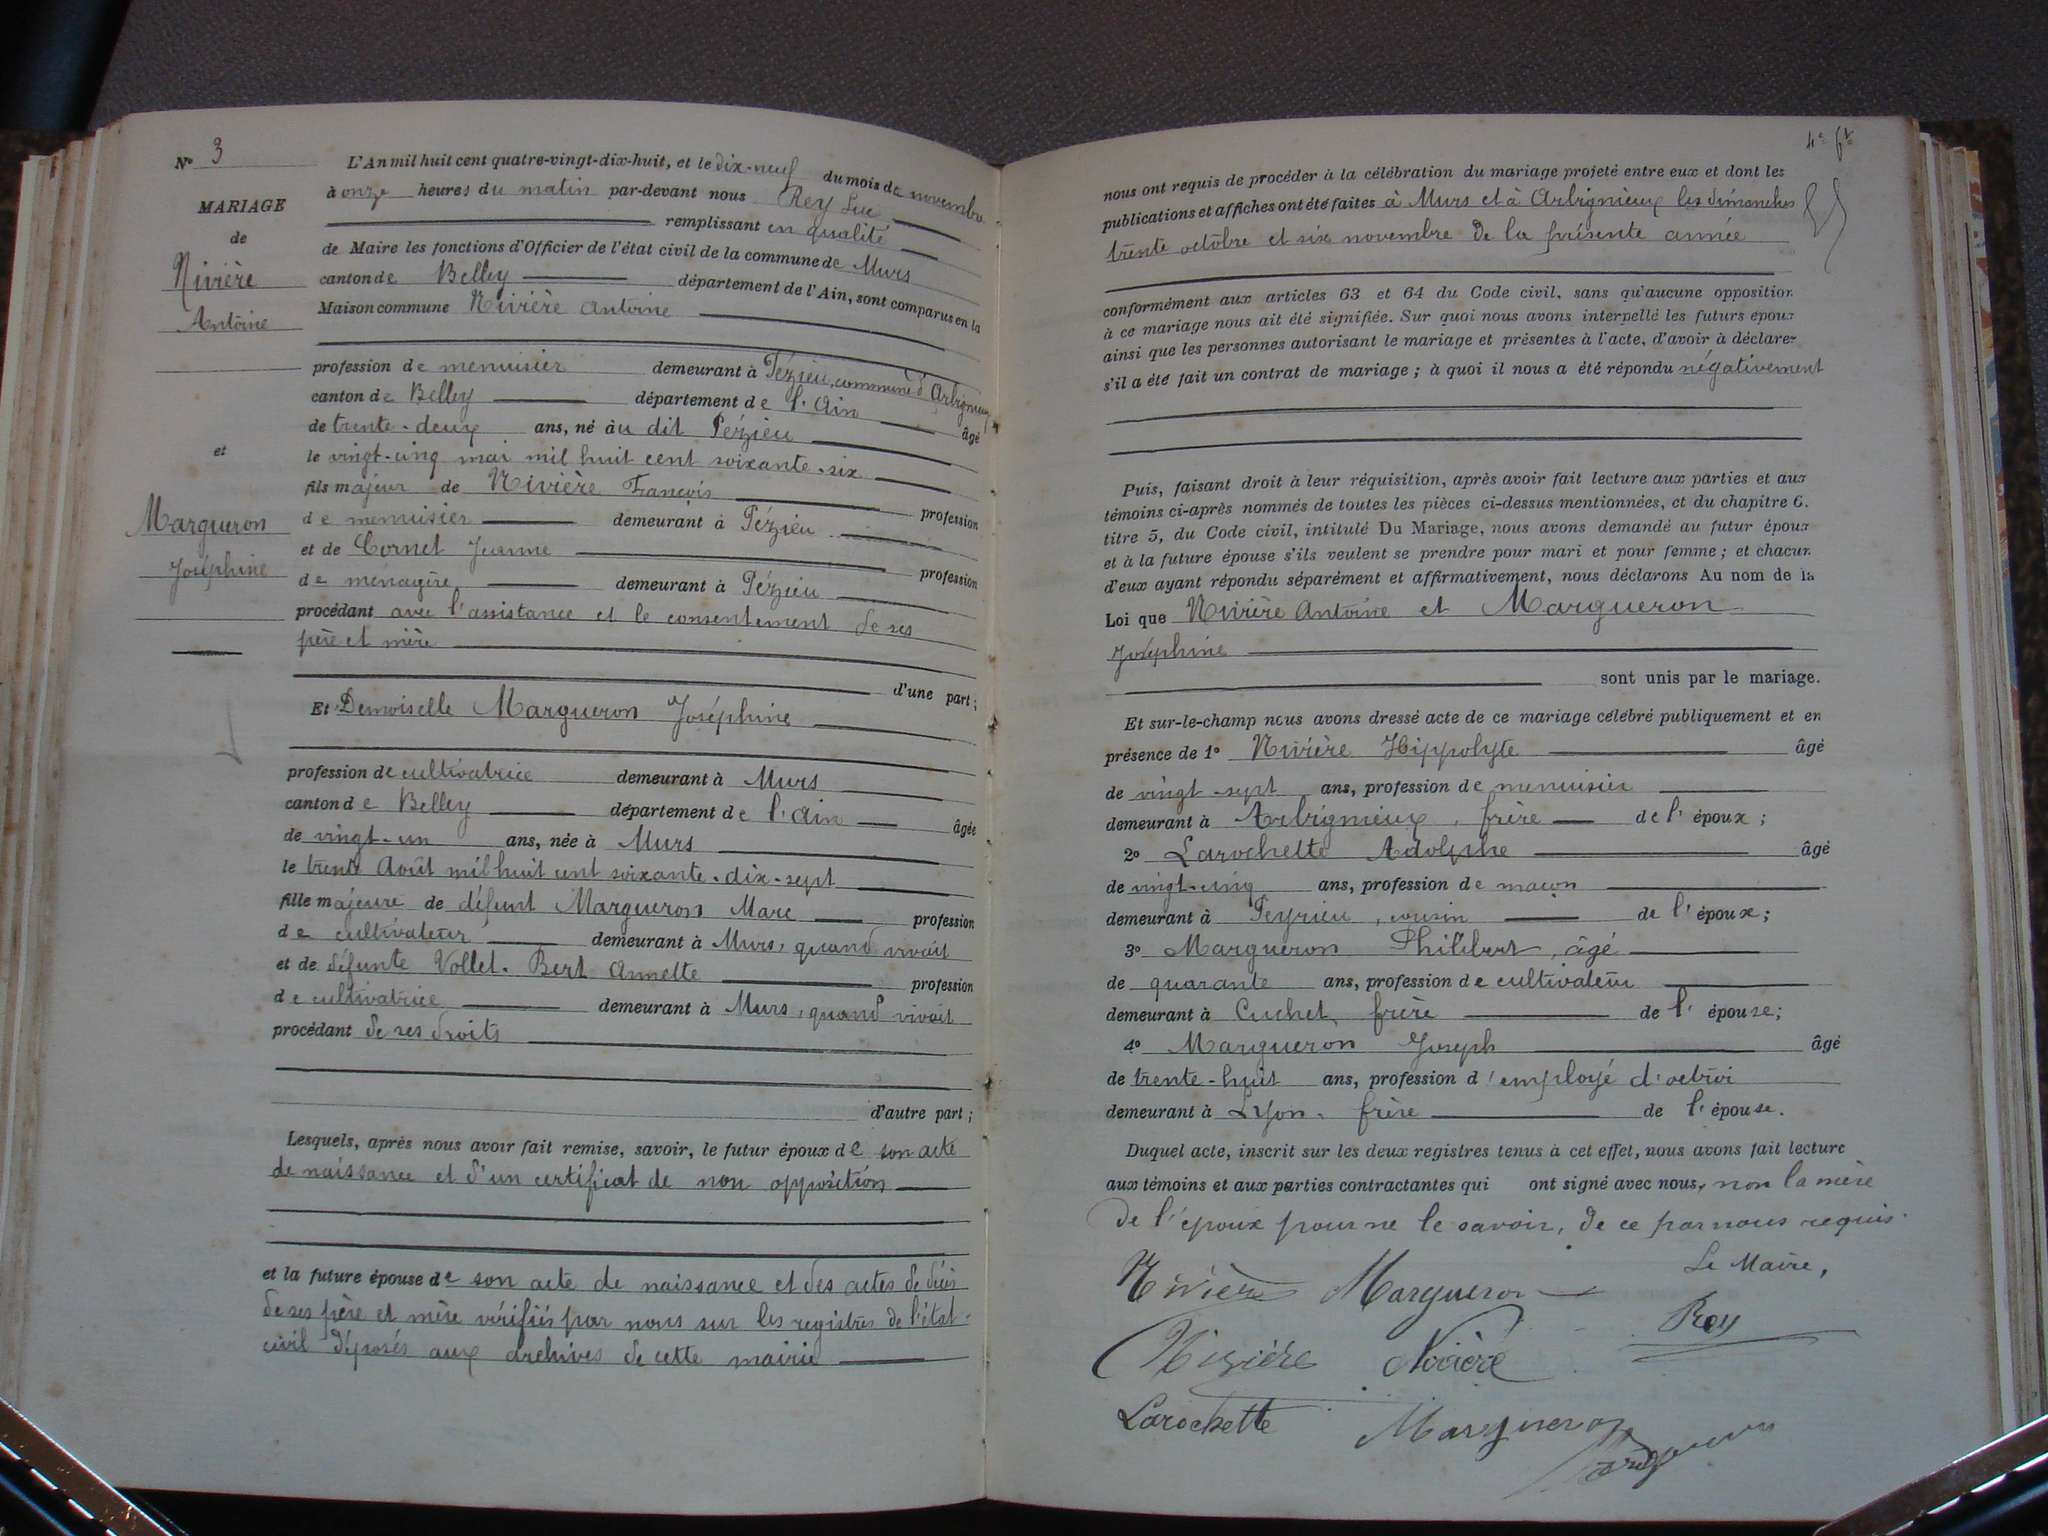 N° 3
MARIAGE
de
Nivière
Antoine
et
Margueron
Joséphine
L'An mil huit cent quatre-vingt-dix-huit, et le dix-neuf du mois de novembre
à onze heures du matin par-devant nous Rey Luc
remplissant en qualité
de Maire les fonctions d'Officier de l'état civil de la commune de Murs
canton de Belley département de l'Ain, sont comparus en la
Maison commune Nivière Antoine
profession de menuisier demeurant à Pézieu, commune d'Arbignieux
canton de Belley département de l'Ain âgé
de trente-deux ans, né àu dit Pézieu
le vingt-cinq mai mil huit cent soixante-six
fils majeur de Nivière François profession
de menuisier demeurant à Pézieu
et de Cornet Jeanne profession
de ménagère demeurant à Pézieu
procédant avec l'assistance et le consentement de ses
père et mère
d'une part;
Et Demoiselle Margueron Joséphine
profession de cultivatrice demeurant à Murs
canton de Belley département de l'Ain âgée
de vingt-un ans, née à Murs
le trente Août mil huit cent soixante-dix-sept
fille majeure de défunt Margueron Marc profession
de cultivateur demeurant à Murs, quand vivait
et de défunte Vollet-Bert Annette profession
de cultivatrice demeurant à Murs, quand vivait
procédant de ses droits
d'autre part;
Lesquels, après nous avoir fait remise, savoir, le futur époux de son acte
de naissance et d'un certificat de non opposition
et la future épouse de son acte de naissance et des actes de décès
de ses père et mère vérifiés par nous sur les registres de l'état-
civil déposés aux archives de cette mairie
nous ont requis de procéder à la célébration du mariage projeté entre eux et dont les
publications et affiches ont été faites à Murs et à Arbignieux les dimanches
trente octobre et six novembre de la présente année
conformément aux articles 63 et 64 du Code civil, sans qu'aucune opposition
à ce mariage nous ait été signifiée. Sur quoi nous avons interpellé les futurs époux
ainsi que les personnes autorisant le mariage et présentes à l'acte, d'avoir à déclarer
s'il a été fait un contrat de mariage; à quoi il nous a été répondu négativement
Puis, faisant droit à leur réquisition, après avoir fait lecture aux parties et aux
témoins ci-après nommés de toutes les pièces ci-dessus mentionnées, et du chapitre 6.
titre 5, du Code civil, intitulé Du Mariage, nous avons demandé au futur époux
et à la future épouse s'ils veulent se prendre pour mari et pour femme; et chacun
d'eux ayant répondu séparément et affirmativement, nous déclarons Au nom de la
Loi que Nivière Antoine et Margueron
Joséphine
sont unis par le mariage.
Et sur-le-champ nous avons dressé acte de ce mariage célébré publiquement et en
présence de 1° Nivière Hippolyte âgé
de vingt-sept ans, profession de menuisier
demeurant à Arbignieux, frère de l'époux;
2° Larochette Adolphe âgé
de vingt-cinq ans, profession de maçon
demeurant à Peyrieu, cousin de l'époux;
3° Margueron Philibert, âgé
de quarante ans, profession de cultivateur
demeurant à Cuchet, frère de l'épouse;
4° Margueron Joseph âgé
de trente-huit ans, profession d'employé d'octroi
demeurant à Lyon, frère de l'épouse.
Duquel acte, inscrit sur les deux registres tenus à cet effet, nous avons fait lecture
aux témoins et aux parties contractantes qui ont signé avec nous, non la mère
de l'époux pour ne le savoir, de ce par nous requis.
Le Maire,
Nivière Margueron
Rey
Nivière Nivière
Larochette Margueron
Margueron